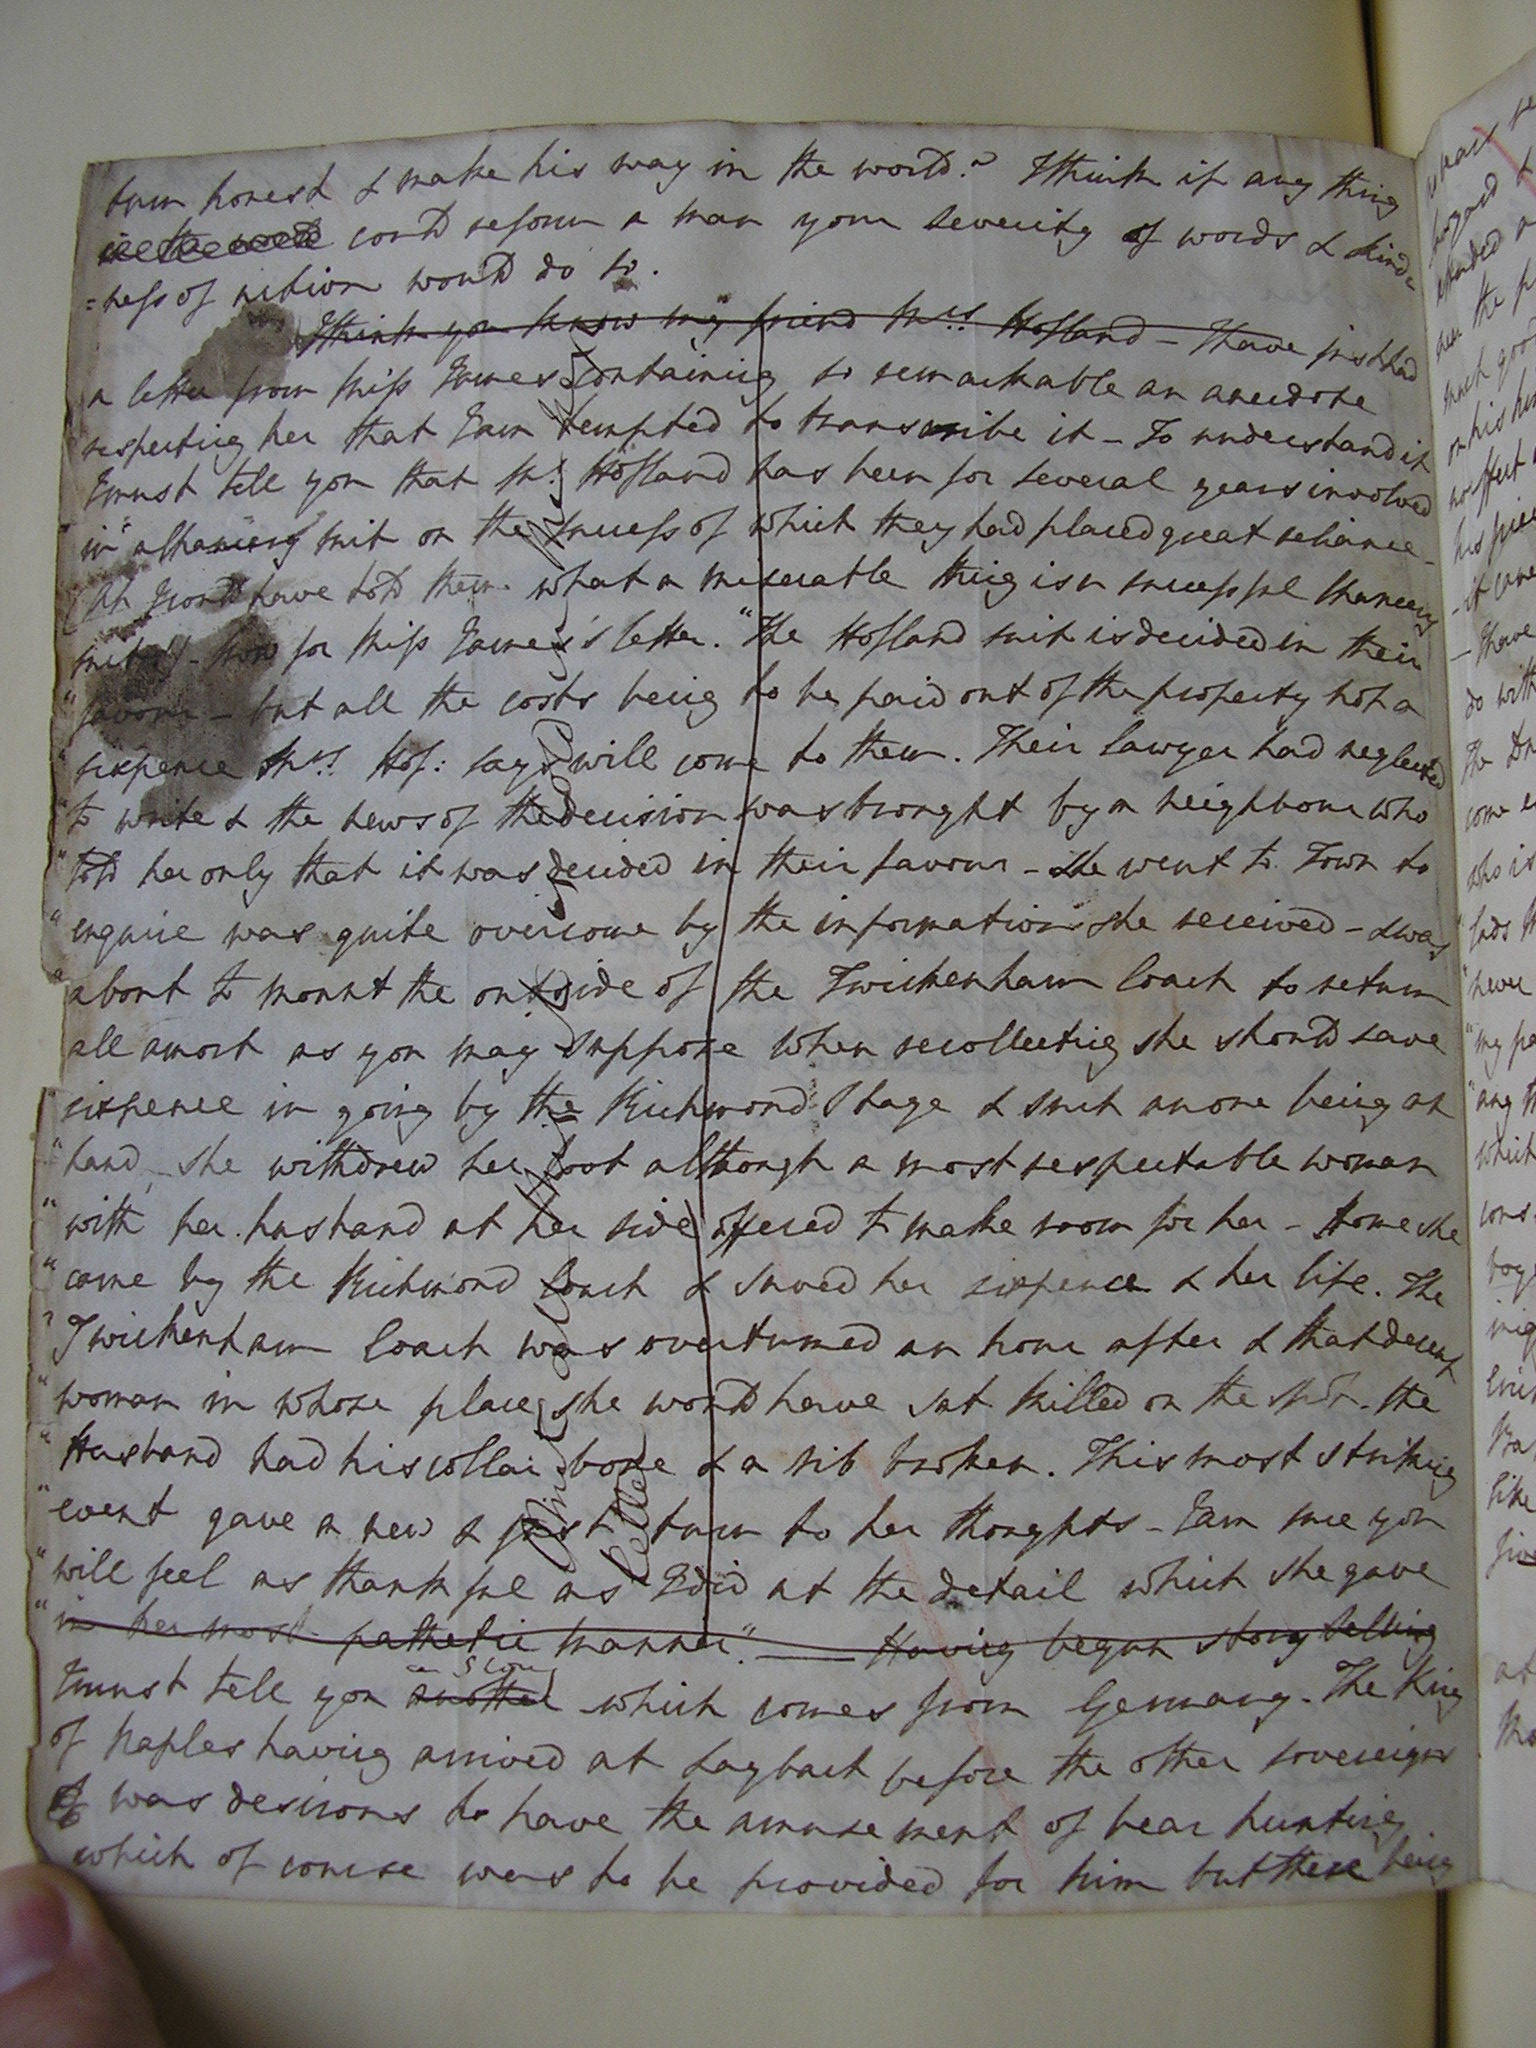 turn honest & make his way in the world? I think if any thing
in the world could reform a man your severity of words & kind=
=ness of action would do so.
I think you know my friend Mrs. Hofland - I have just had
a letter from Miss James containing so remarkable an anecdote
respecting her that I am tempted to transcribe it - To understand it
I must tell you that Mr. Hofland has been for several years involved
in a Chancery suit on the success of which they had placed great reliance -
(Ah I could have told them what a miserable thing is a successful Chancery
suit) - Now for Miss James's letter. "The Hofland suit is decided in their
"favour - but all the costs being to be paid out of the property not a
"sixpence Mrs. Hof: says will come to them. Their lawyer had neglected
"to write & the news of the decision was brought by a neighbour who
"told her only that it was decided in their favour - She went to Town to
"enquire was quite overcome by the information she received - & was
"about to mount the outside of the Twickenham Coach to return
all amort as you may suppose when recollecting she should save
sixpence in going by the Richmond Stage & such a one being at
"hand, she withdrew her foot although a most respectable woman
"with her husband at her side offered to make room for her - Home she
"came by the Richmond Coach & saved her sixpence & her life. The
"Twickenham Coach was overturned an hour after & that decent
"woman in whose place she would have sat killed on the spot. the
"Husband had his collar bone & a rib broken. This most striking
"event gave a new & just turn to her thoughts - I am sure you
"will feel as thankful as I did at the detail which she gave
"in her most pathetic manner." Having begun story telling
I must tell you another a story which comes from Germany. The King
of Naples having arrived at Laybach before the other sovereigns
& was desirous to have the amusement of bear hunting
which of course was to be provided for him but there being